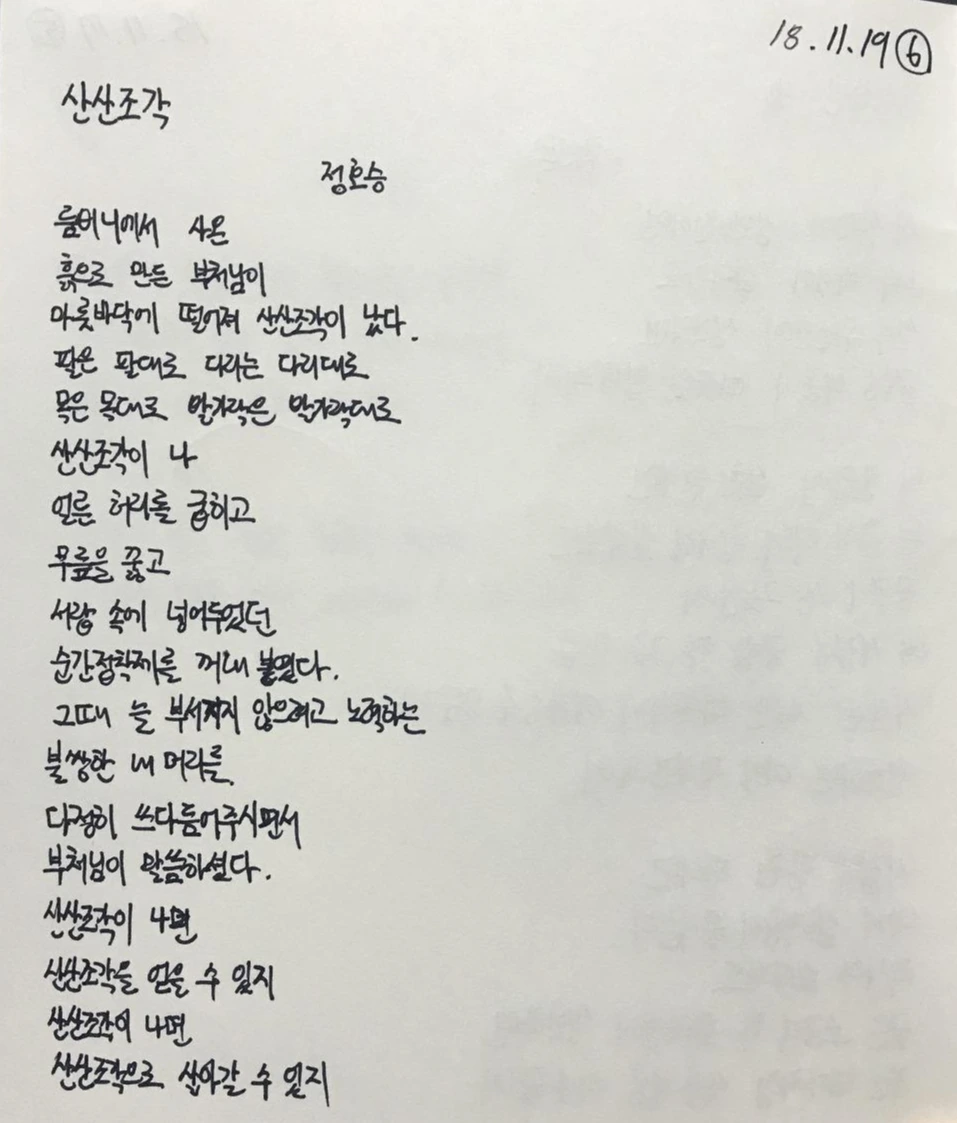 18.11.19 ⑥
산산조각
정호승
룸비니에서 사온
흙으로 만든 부처님이
마룻바닥에 떨어져 산산조각이 났다.
팔은 팔대로 다리는 다리대로
목은 목대로 발가락은 발가락대로
산산조각이 나
얼른 허리를 굽히고
무릎을 꿇고
서랍 속에 넣어두었던
순간접착제를 꺼내 붙였다.
그때 늘 부서지지 않으려고 노력하는
불쌍한 내 머리를
다정히 쓰다듬어주시면서
부처님이 말씀하셨다.
산산조각이 나면
산산조각을 얻을 수 있지
산산조각이 나면
산산조각으로 살아갈 수 있지